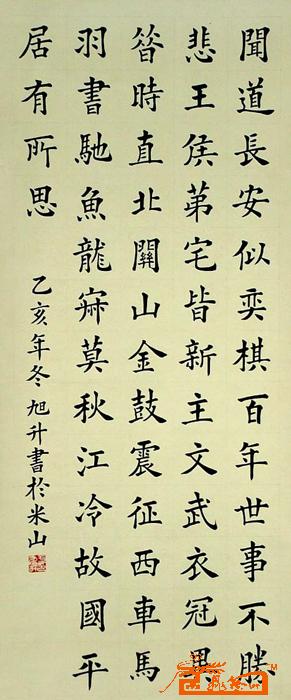 聞道長安似奕棋百年世事不勝
悲王侯苐宅皆新主文武衣冠異
昔時直北關山金鼓震征西車馬
羽書馳魚龍寂莫秋江冷故國平
居有所思
乙亥年冬旭升書於米山